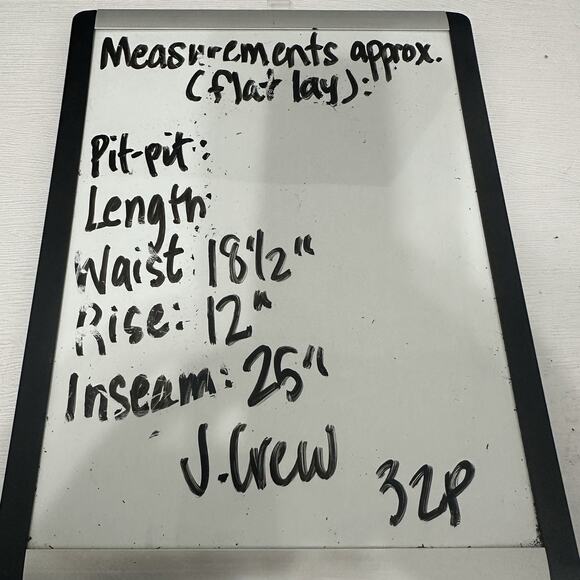 Measurements approx.
(flat lay):
Pit-pit:
Length:
Waist: 18½"
Rise: 12"
Inseam: 25"
J.Crew
32P